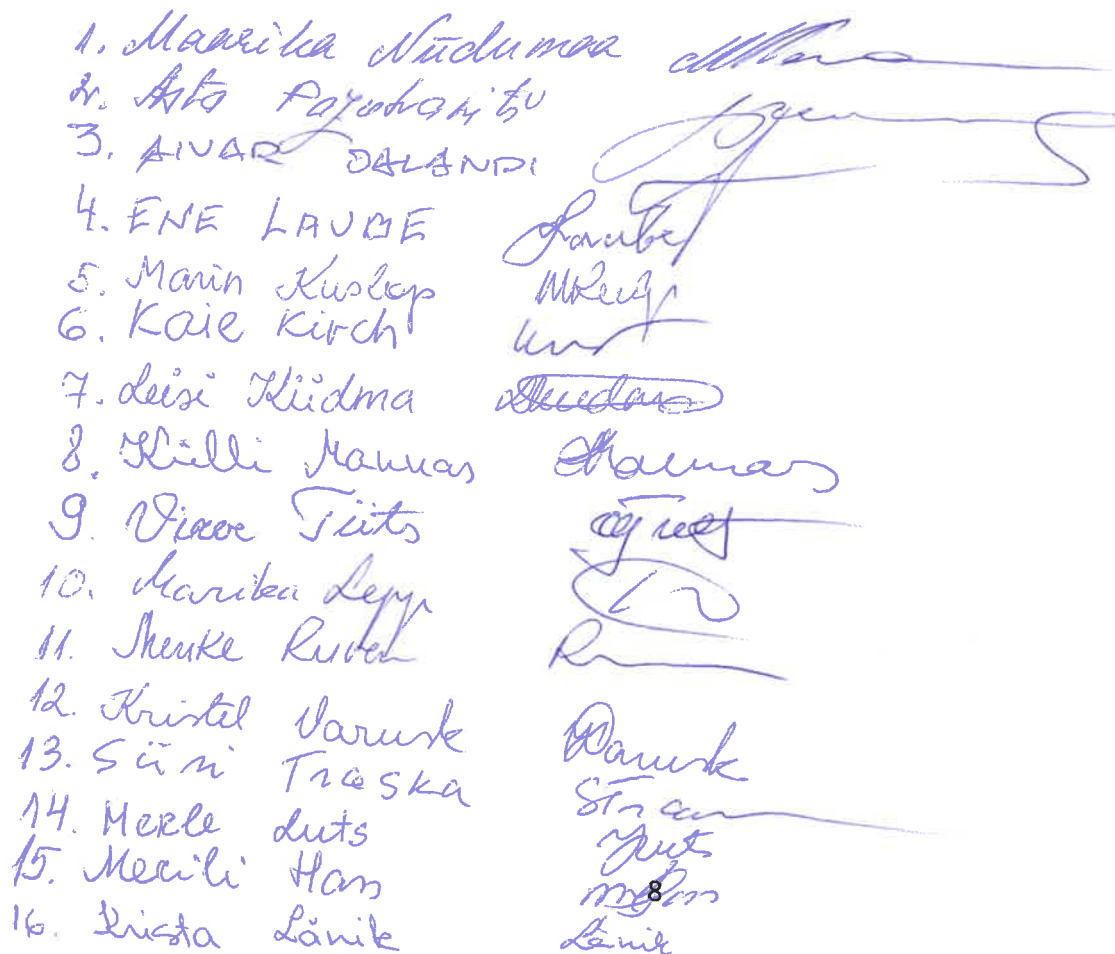 1. Maarika Niidumaa
2. Asta
3. AIVAR OALANDI
4. ENE LAUBE Laube
5. Marin Kuslap MKusl
6. Kaie Kirch
7. Leisi Kiidma
8. Külli Mannas Mannas
9. Virve Tiits
10. Marika Lepp
11. Menke Ruven
12. Kristel Varusk Varusk
13. Siiri Traska STra
14. Merle Luts Luts
15. Merili Hass
8
16. Krista Länik Länik